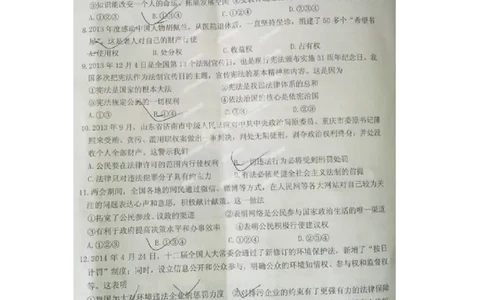 ②知识能改变一个人的命运，拓展发展空间
A.①②③ B.①③④ C.①②④
8.2013年度感动中国人物胡佩兰，从医院退休后，一直坚持坐诊，捐建了50多个“希望书
屋”。这是老人对自己的财产行使
A.使用权 B.处分权 C.收益权 D.占有权
9.2013年12月4日是全国第13个法制宣传日，也是现行宪法颁布实施31周年纪念日。我
国多次把宪法作为法制宣传日的主题，宣传宪法的基本精神和内容。这是因为
①宪法是国家的根本大法 ②宪法是我国法律体系的总和
③宪法规定公民的一切权利 ④依法治国的核心是依宪治国
A.①③ B.①④ C.②④ D.②③
10.2013年9月，山东省济南市中级人民法院对中共中央政治局原委员、重庆市委原书记薄
熙来受贿、贪污、滥用职权案做出一审判决，判处无期徒刑，剥夺政治权利终身，并处没
收个人全部财产。这警示我们
A.公民要在法律许可的范围内行使权利 B.一切违法行为必将受到刑罚处罚
C.法律只对违法犯罪分子具有约束力 D.有法必依是健全社会主义法制的前提
11.两会期间，全国各地的网民通过微信、微博等方式，在人民网等各大网站对自己较为关
注的问题表达心声和意愿，积极献计献策。这一做法
①拓宽了公民参政、议政的渠道 ②表明网络是公民参与国家政治生活的唯一渠道
③有利于政府提高决策水平和办事效率 ④表明公民积极行使建议权
A.①②③ B.①③④ C.①②④ D.②③④
12.2014年4月24日，十二届全国人大常委会通过了新修订的环境保护法，新增了“按日
计罚”制度；同时，设立信息公开和公众参与，明确公众的环境知情权、参与权和监督权
等。这
①增加对环境违法企业的惩罚力度 ②对排污企业的约束有了更强有力的法律保障